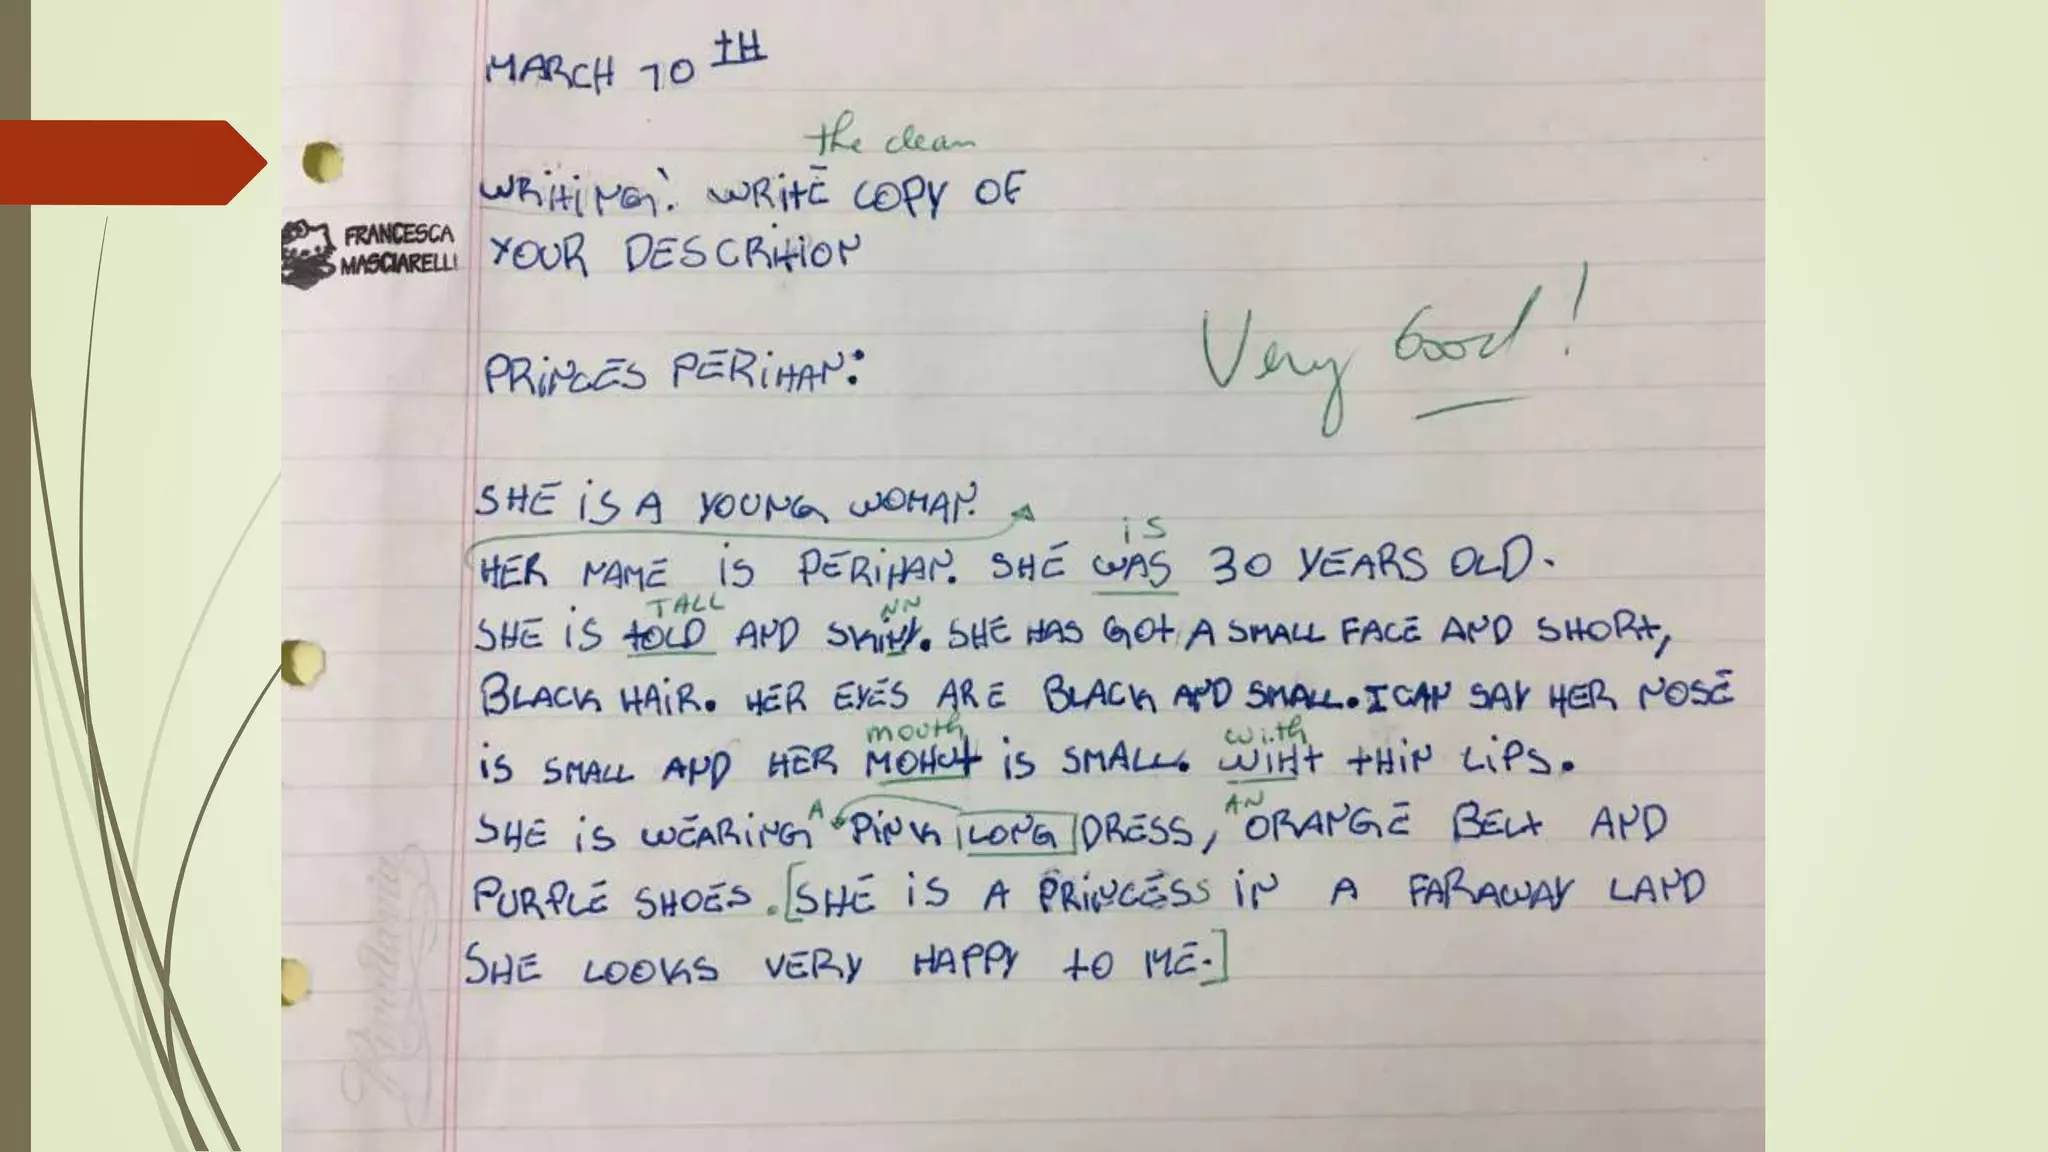 MARCH 10TH
the clean
WRITING: WRITE COPY OF
FRANCESCA
MASCIARELLI
YOUR DESCRITION
Very Good!
PRINCES PERIHAN:
SHE IS A YOUNG WOMAN.
is
HER NAME IS PERIHAN. SHE WAS 30 YEARS OLD.
TALL NN
SHE IS TOLD AND SKINY. SHE HAS GOT A SMALL FACE AND SHORT,
BLACK HAIR. HER EYES ARE BLACK AND SMALL. I CAN SAY HER NOSE
mouth with
IS SMALL AND HER MOHUT IS SMALL. WIHT THIN LIPS.
A AN
SHE IS WEARING PINK LONG DRESS, ORANGE BELT AND
PURPLE SHOES. [SHE IS A PRINCESS IN A FARAWAY LAND
SHE LOOKS VERY HAPPY TO ME.]